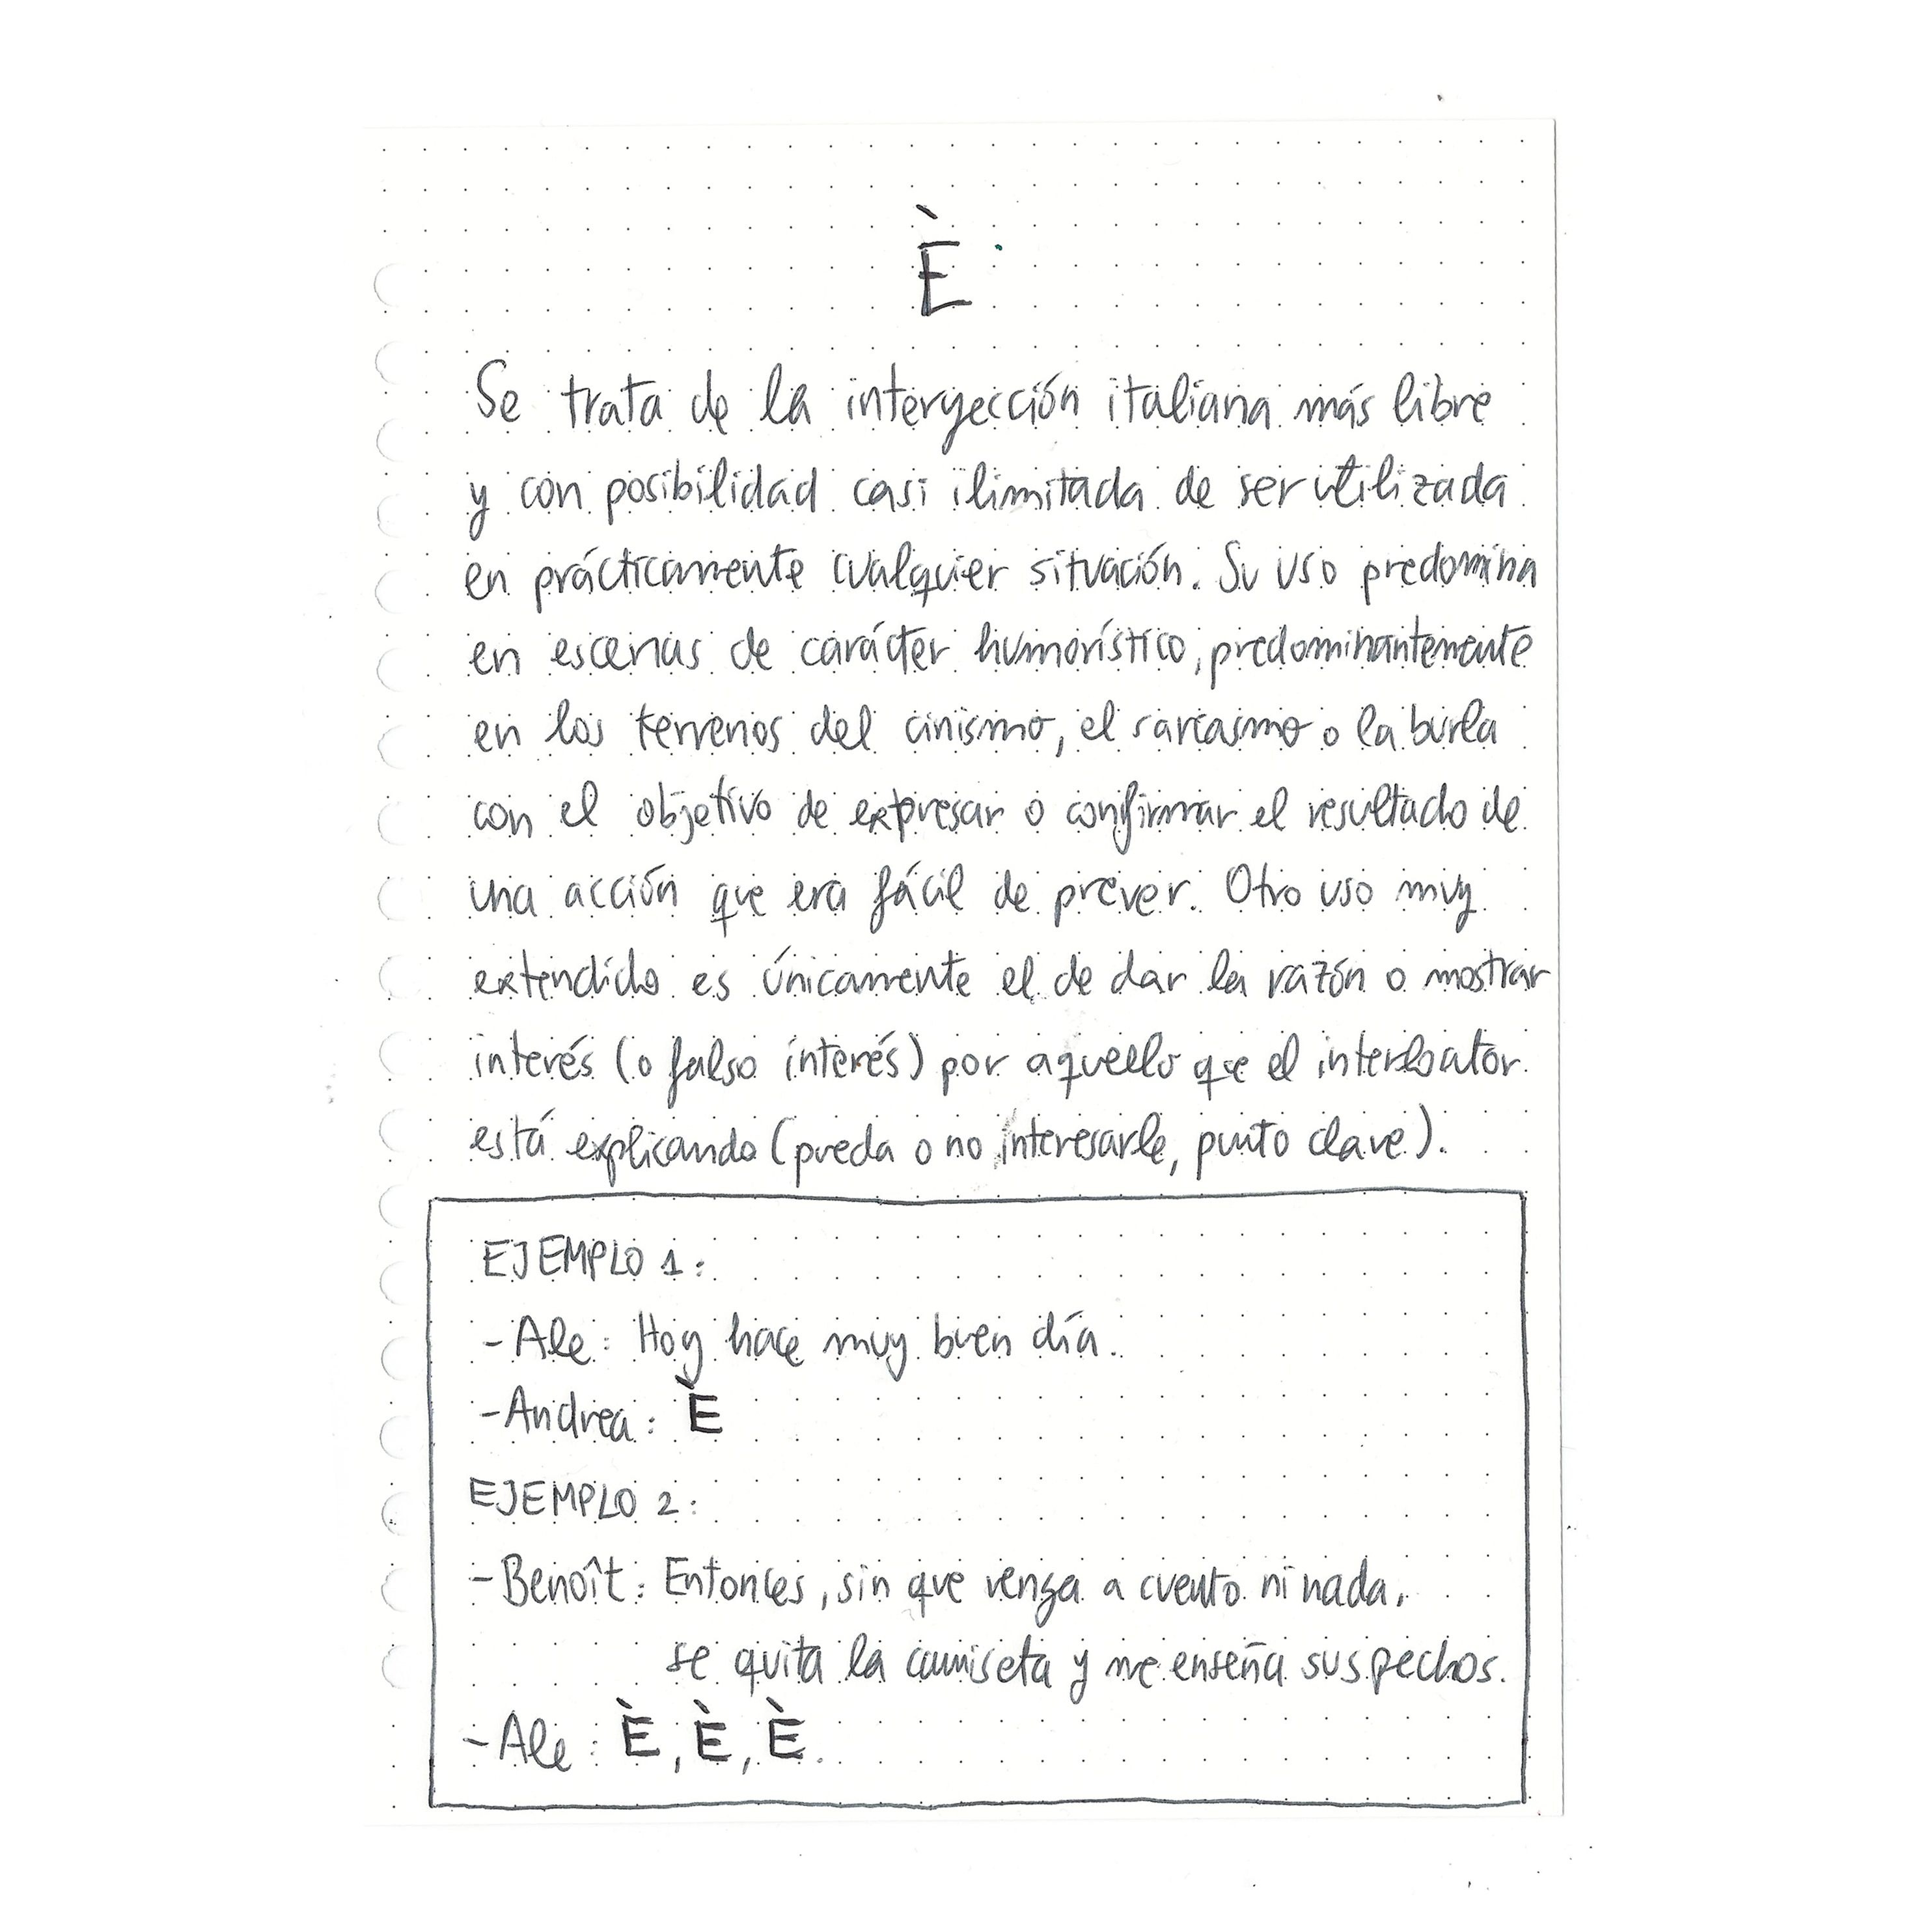 È
Se trata de la interyección italiana más libre
y con posibilidad casi ilimitada de ser utilizada
en prácticamente cualquier situación. Su uso predomina
en escenas de carácter humorístico, predominantemente
en los terrenos del cinismo, el sarcasmo o la burla
con el objetivo de expresar o confirmar el resultado de
una acción que era fácil de prever. Otro uso muy
extendido es únicamente el de dar la razón o mostrar
interés (o falso interés) por aquello que el interlocutor
está explicando (pueda o no interesarle, punto clave).
EJEMPLO 1:
-Ale: Hoy hace muy buen día.
-Andrea: È
EJEMPLO 2:
-Benoît: Entonces, sin que venga a cuento ni nada,
se quita la camiseta y me enseña sus pechos.
-Ale: È, È, È.